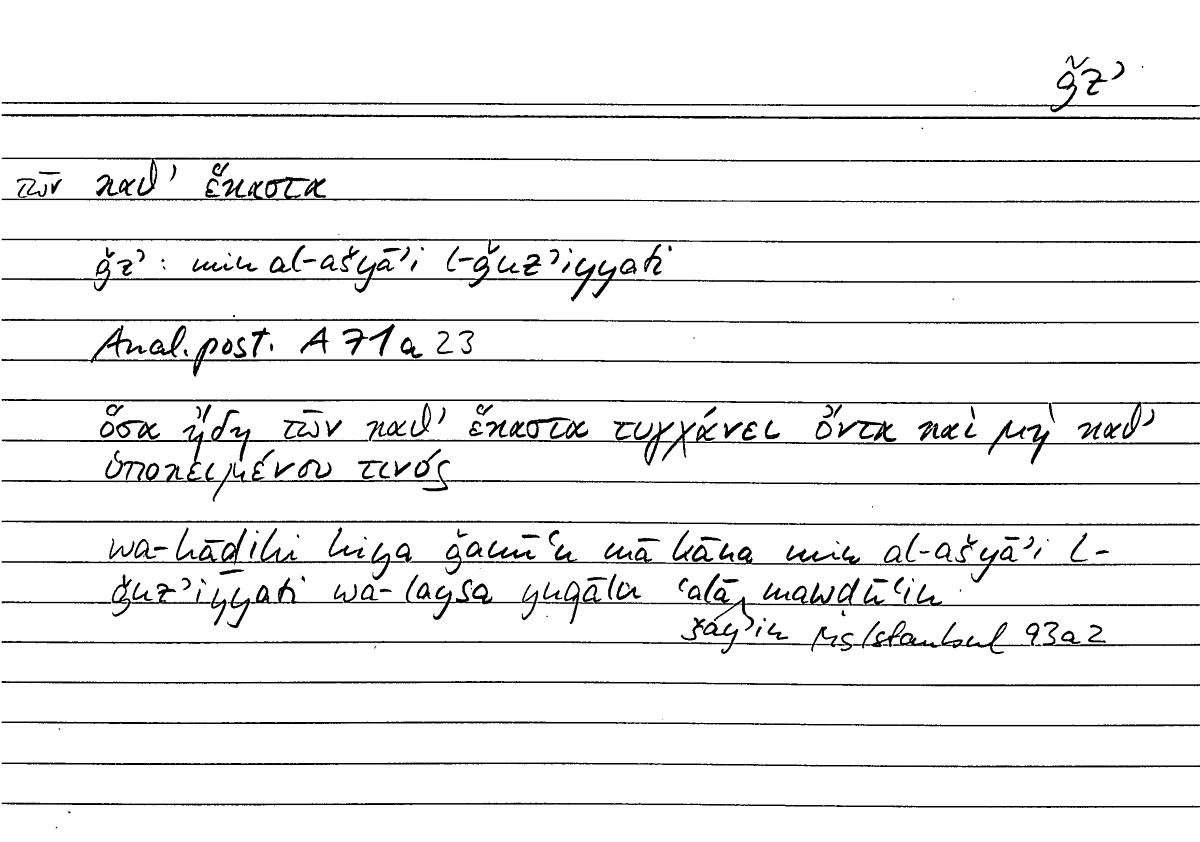 ǧzʾ
τῶν καθ' ἕκαστα
ǧzʾ : min al-ašyāʾi l-ǧuzʾiyyati
Anal. post. A 71 a 23
ὅσα ἤδη τῶν καθ' ἕκαστα τυγχάνει ὄντα καὶ μὴ καθ'
ὑποκειμένου τινός
wa-hādihi hiya ǧamīʿu mā kāna min al-ašyāʾi l-
ǧuzʾiyyati wa-laysa yuqālu ʿalā mawdūʿin
šayʾin Ms Istanbul 93a2